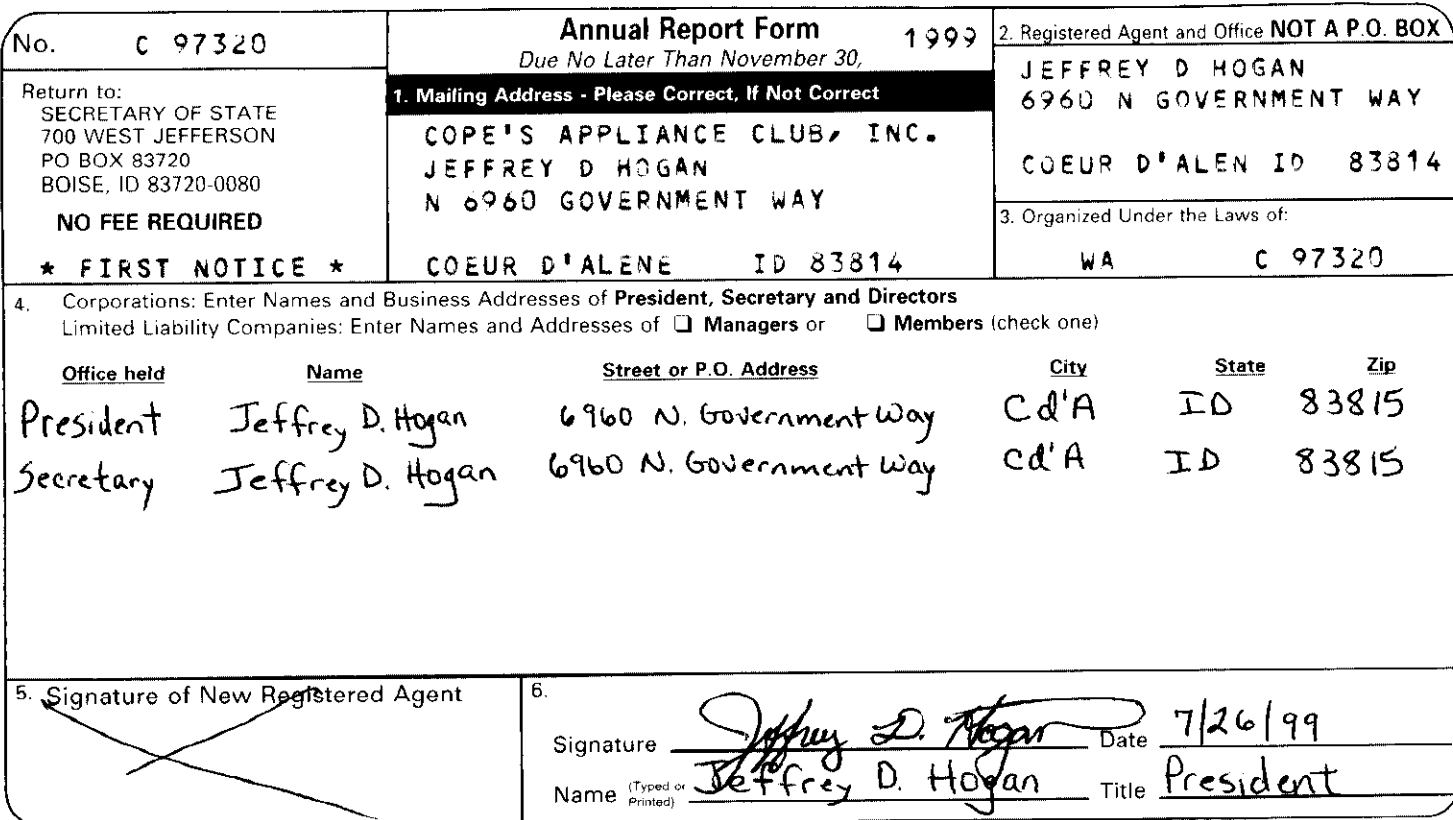 No. C 97320
Return to:
SECRETARY OF STATE
700 WEST JEFFERSON
PO BOX 83720
BOISE, ID 83720-0080
NO FEE REQUIRED
* FIRST NOTICE *
Annual Report Form 1999
Due No Later Than November 30,
1. Mailing Address - Please Correct, If Not Correct
COPE'S APPLIANCE CLUB, INC.
JEFFREY D HOGAN
N 6960 GOVERNMENT WAY
COEUR D'ALENE ID 83814
2. Registered Agent and Office NOT A P.O. BOX
JEFFREY D HOGAN
6960 N GOVERNMENT WAY
COEUR D'ALEN ID 83814
3. Organized Under the Laws of:
WA C 97320
4. Corporations: Enter Names and Business Addresses of President, Secretary and Directors
Limited Liability Companies: Enter Names and Addresses of ❏ Managers or ❏ Members (check one)
Office held Name Street or P.O. Address City State Zip
President Jeffrey D. Hogan 6960 N. Government Way Cd'A ID 83815
Secretary Jeffrey D. Hogan 6960 N. Government Way Cd'A ID 83815
5. Signature of New Registered Agent
6.
Signature Jeffrey D. Hogan Date 7/26/99
Name (Typed or Printed) Jeffrey D. Hogan Title President